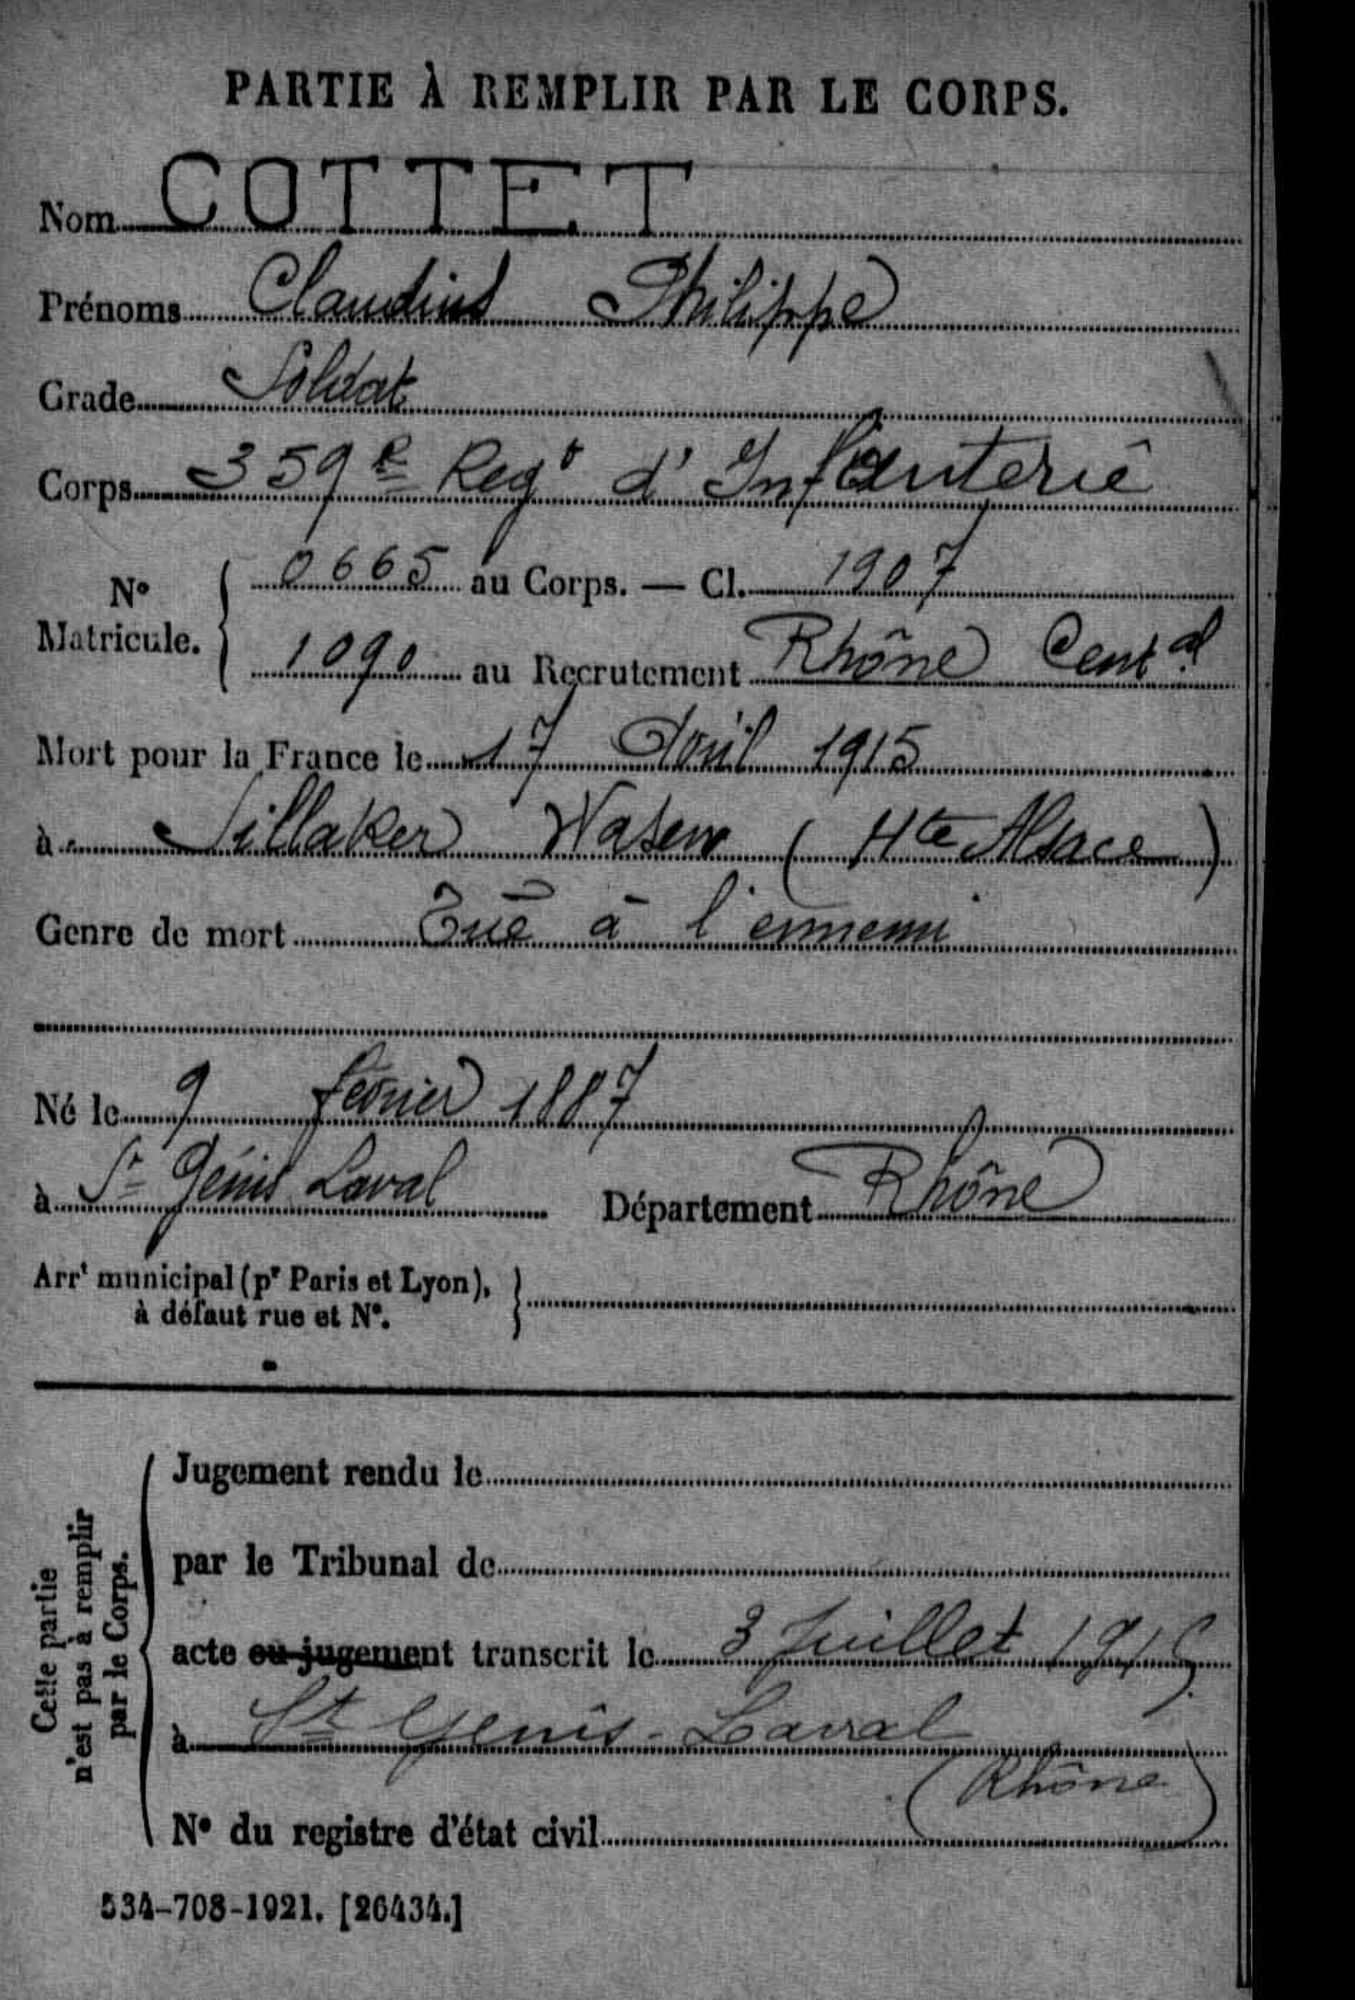 PARTIE À REMPLIR PAR LE CORPS.
Nom COTTET
Prénoms Claudius Philippe
Grade Soldat
Corps 359e Regt d'Infanterie
No Matricule. { 0665 au Corps. — Cl. 1907
1090 au Recrutement Rhône Cental
Mort pour la France le 17 Avril 1915
à Sillaker Wasen (Hte Alsace)
Genre de mort Tué à l'ennemi
Né le 9 février 1887
à St Génis Laval Département Rhône
Arrt municipal (pr Paris et Lyon),
à défaut rue et N°.
Cette partie
n'est pas à remplir
par le Corps.
Jugement rendu le
par le Tribunal de
acte ou jugement transcrit le 3 Juillet 1915
à St Genis-Laval
(Rhône)
N° du registre d'état civil
534-708-1921. [26434.]